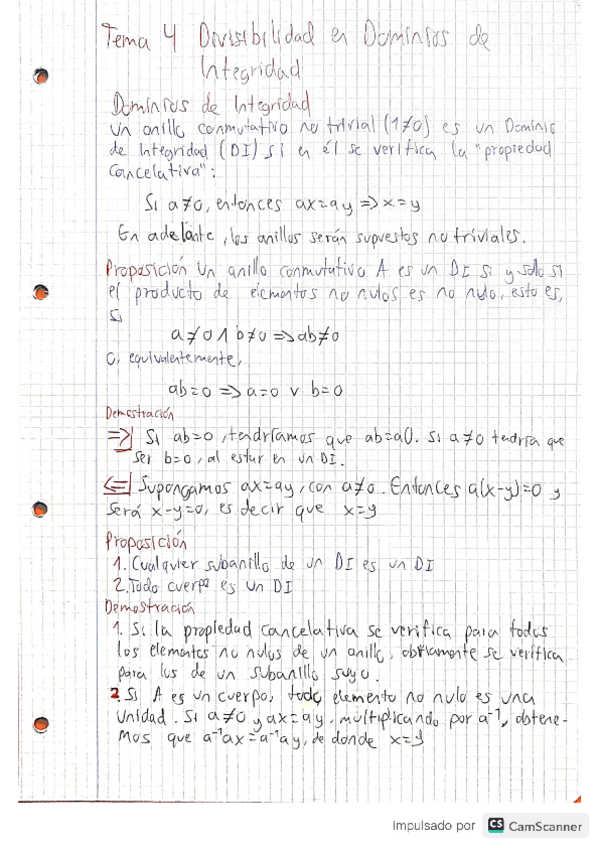 Tema 4 Divisibilidad en Dominios de
Integridad
Dominios de Integridad
Un anillo conmutativo no trivial (1≠0) es un Dominio
de Integridad (DI) si en él se verifica la "propiedad
Cancelativa":
Si a≠0, entonces ax=ay => x=y
En adelante, los anillos serán supuestos no triviales.
Proposición Un anillo conmutativo A es un DI si y solo si
el producto de elementos no nulos es no nulo, esto es,
si
a≠0 ∧ b≠0 => ab≠0
O, equivalentemente,
ab=0 => a=0 ∨ b=0
Demostración
=>| Si ab=0, tendríamos que ab=a0. Si a≠0 tendría que
ser b=0, al estar en un DI.
<=| Supongamos ax=ay, con a≠0. Entonces a(x-y)=0 y
Será x-y=0, es decir que x=y
Proposición
1. Cualquier subanillo de un DI es un DI
2. Todo cuerpo es un DI
Demostración
1. Si la propiedad cancelativa se verifica para todos
los elementos no nulos de un anillo, obviamente se verifica
para los de un subanillo suyo.
2. Si A es un cuerpo, todo elemento no nulo es una
Unidad. Si a≠0 y ax=ay, multiplicando por a⁻¹, obtene-
mos que a⁻¹ax=a⁻¹ay, de donde x=y
Impulsado por CS CamScanner